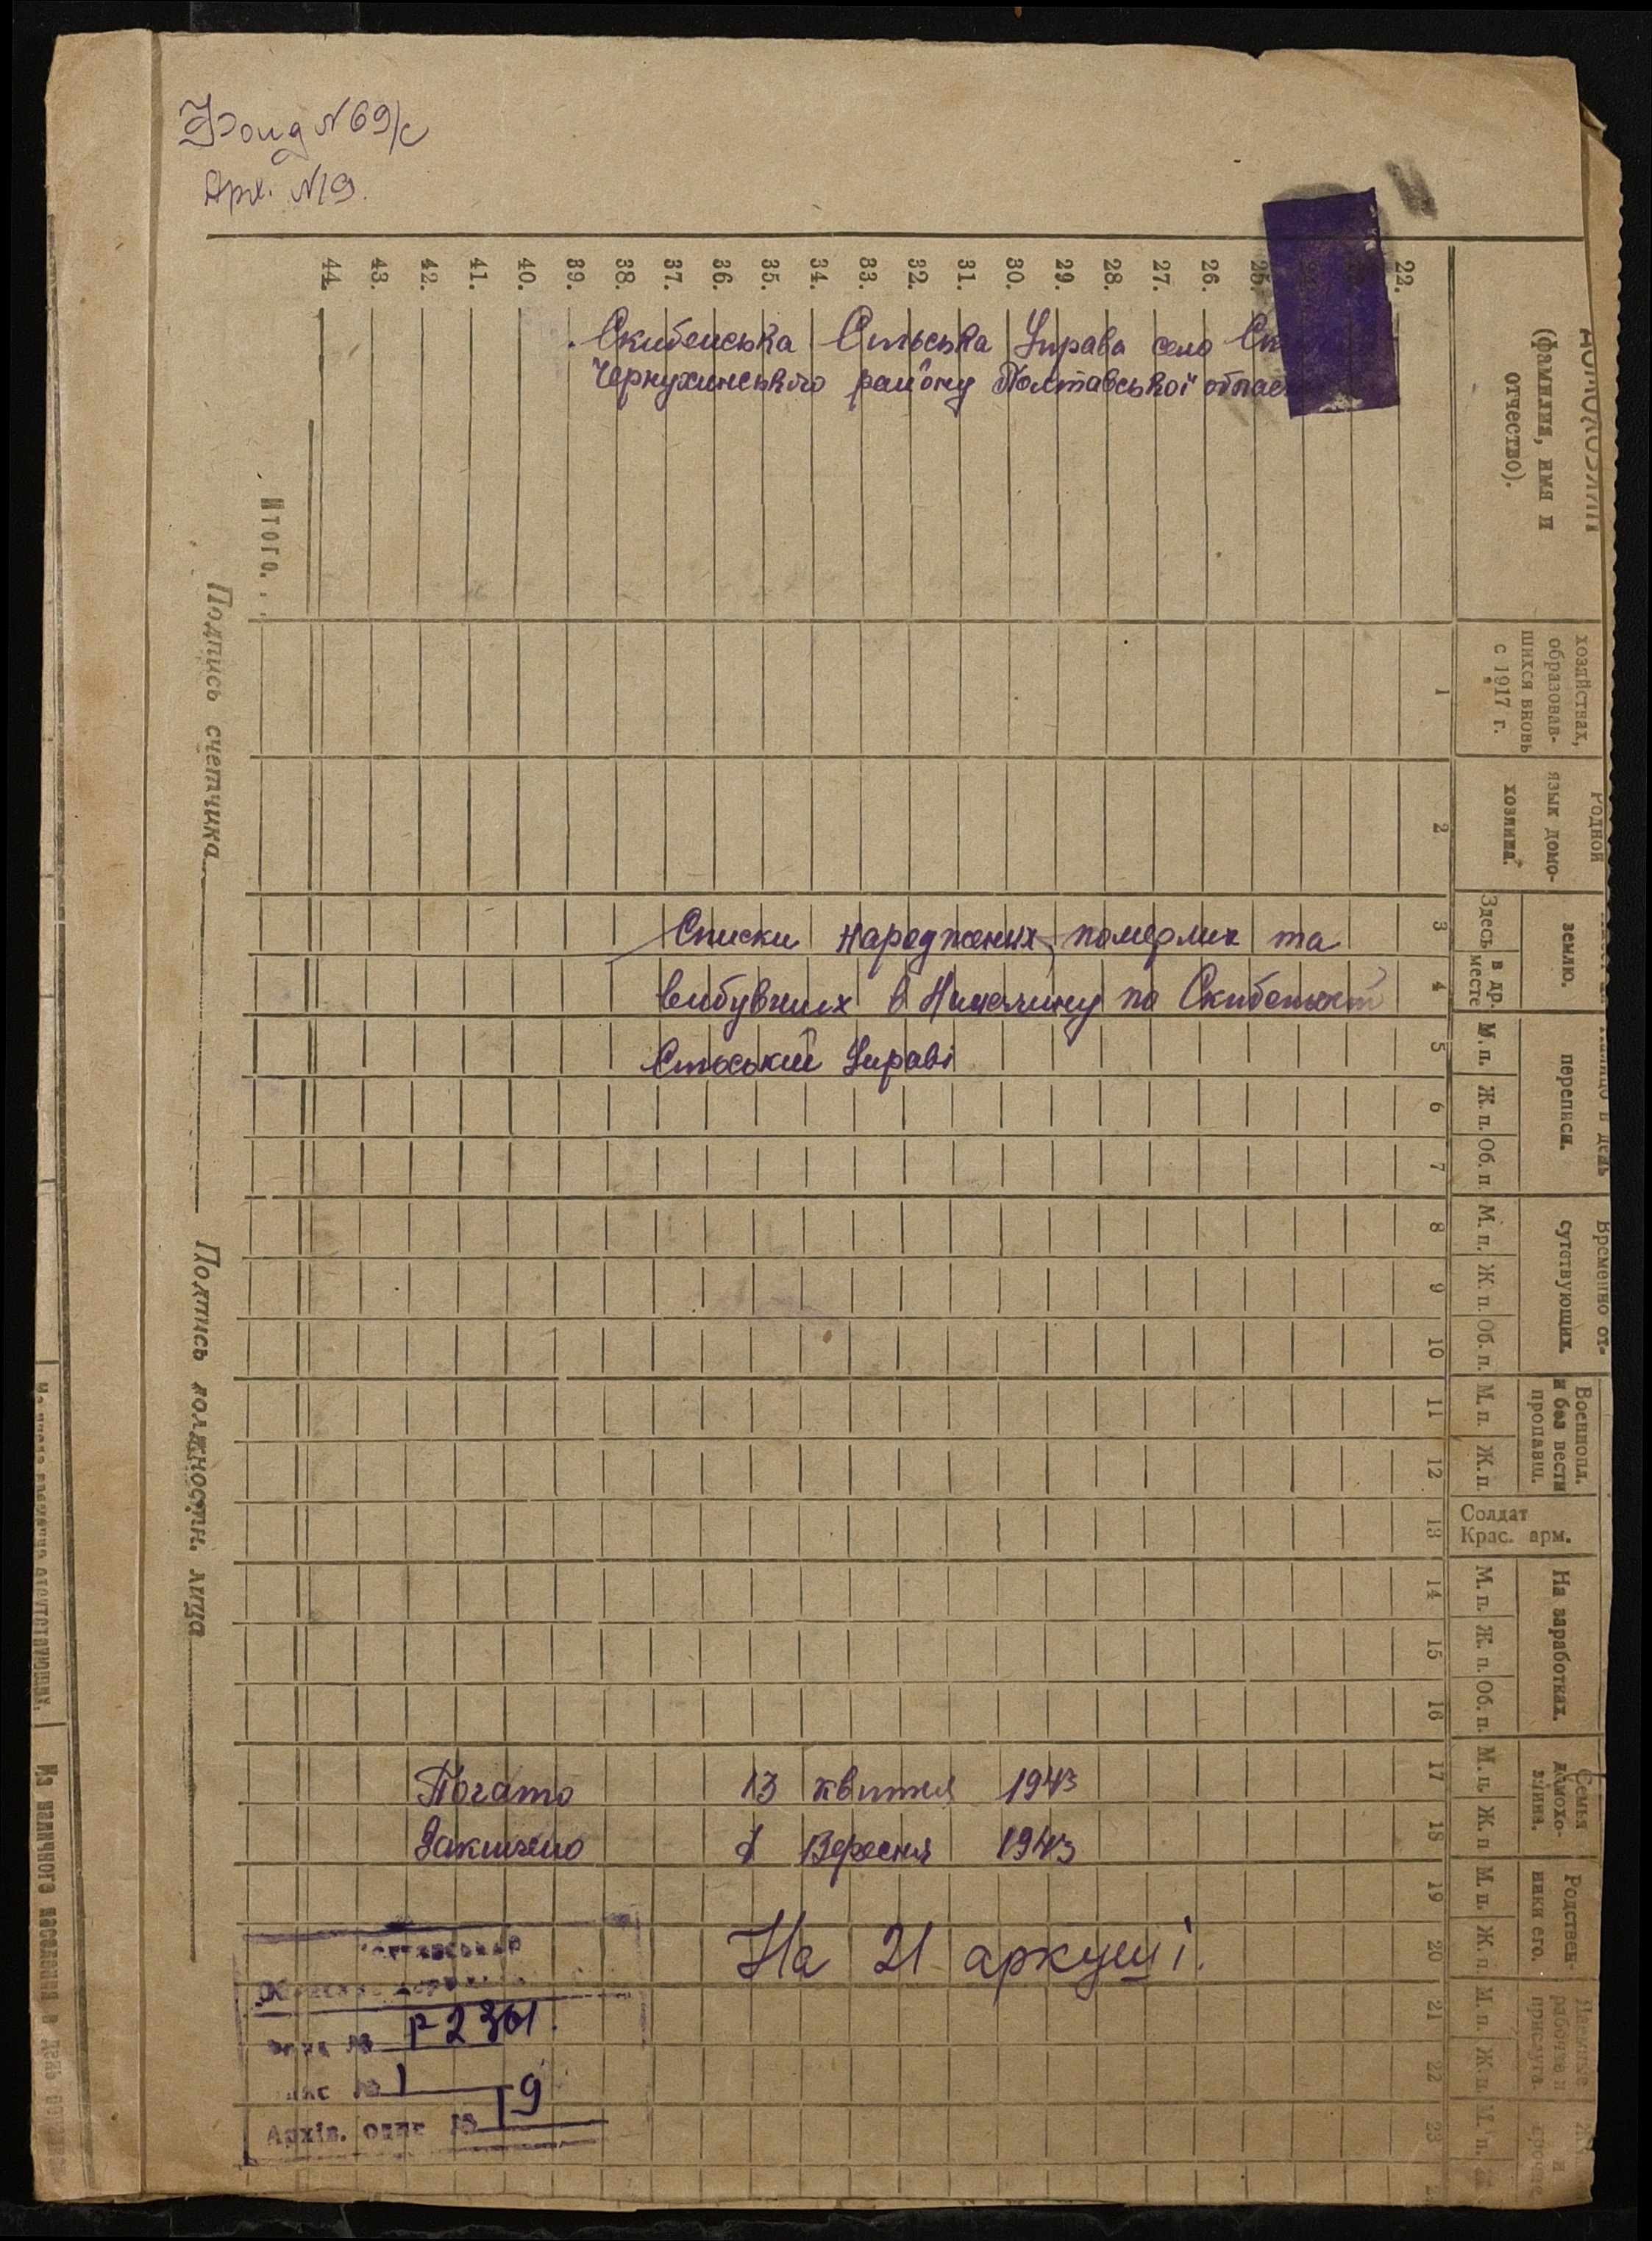 Фонд №69/с
Арх. №19.
Скибенська Сільська Управа село
Чорнухинського району Полтавської
Списки народжених, померлих та
вибувших в Нимеччину по Скибенській
Сільській Управі
Почато 13 квітня 1943
Закінчено 1 Вересня 1943
На 21 аркуші.
Р-2361.
№ 1
Архів. опис № 19
44. 43. 42. 41. 40. 39. 38. 37. 36. 35. 34. 33. 32. 31. 30. 29. 28. 27. 26. 25. 22.
Итого. . .
Подпись счетчика
Подпись должностн. лица
(фамилия, имя и
отчество).
хозяйствах,
образовав-
шихся вновь
с 1917 г.
Родной
язык домо-
хозяина.
землю.
Здесь
в др.
месте
переписи.
М. п. Ж. п. Об. п.
Временно от-
сутствующих.
М. п. Ж. п. Об. п.
Военнопл.
и без вести
пропавш.
М. п. Ж. п.
Солдат
Крас. арм.
На заработках.
М. п. Ж. п. Об. п.
Семья
домохо-
зяина.
М. п. Ж. п.
Родствен-
ники его.
М. п. Ж. п.
рабочие и
прислуга.
М. п. Ж. п.
М. п.
1 2 3 4 5 6 7 8 9 10 11 12 13 14 15 16 17 18 19 20 21 22 23
Из наличного населения в день